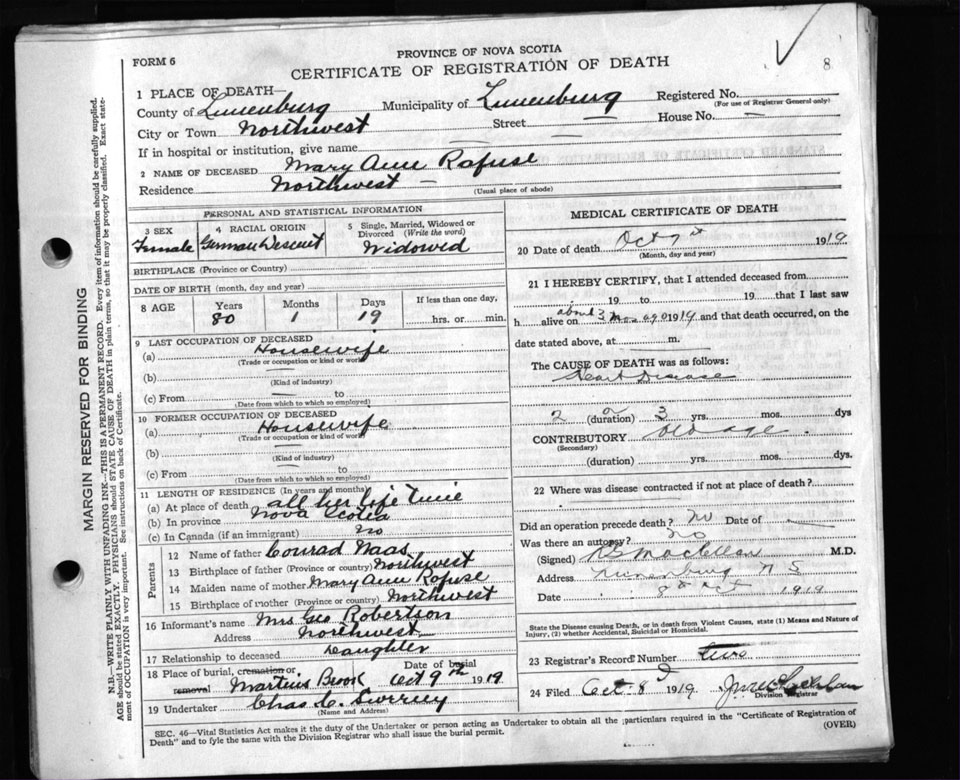 FORM 6
PROVINCE OF NOVA SCOTIA
CERTIFICATE OF REGISTRATION OF DEATH
8
MARGIN RESERVED FOR BINDING
N.B.—WRITE PLAINLY WITH UNFADING INK—THIS IS A PERMANENT RECORD. Every item of information should be carefully supplied.
AGE should be stated EXACTLY. PHYSICIANS should STATE CAUSE OF DEATH in plain terms, so that it may be properly classified. Exact state-
ment of OCCUPATION is very important. See instructions on back of Certificate.
1 PLACE OF DEATH—
County of Lunenburg Municipality of Lunenburg Registered No.
(For use of Registrar General only)
City or Town Northwest Street — House No. —
If in hospital or institution, give name — —
2 NAME OF DECEASED Mary Ann Rafuse
Residence Northwest —
(Usual place of abode)
PERSONAL AND STATISTICAL INFORMATION
3 SEX
Female
4 RACIAL ORIGIN
German Descent
5 Single, Married, Widowed or
Divorced (Write the word)
Widowed
BIRTHPLACE (Province or Country)
DATE OF BIRTH (month, day and year)
8 AGE Years Months Days If less than one day,
80 1 19 hrs. or min.
9 LAST OCCUPATION OF DECEASED
(a) Housewife
(Trade or occupation or kind or work)
(b) —
(Kind of industry)
(c) From — to
(Date from which to which so employed)
10 FORMER OCCUPATION OF DECEASED
(a) Housewife
(Trade or occupation or kind or work)
(b) —
(Kind of industry)
(c) From — to
(Date from which to which so employed)
11 LENGTH OF RESIDENCE (In years and months)
(a) At place of death all her life time
(b) In province Nova Scotia
(c) In Canada (if an immigrant) no
Parents
12 Name of father Conrad Naas
13 Birthplace of father (Province or country) Northwest
14 Maiden name of mother Mary Ann Rafuse
15 Birthplace of mother (Province or country) Northwest
16 Informant's name Mrs Geo Robertson
Address Northwest
17 Relationship to deceased Daughter
18 Place of burial, cremation or Date of burial
removal Martins Brook Oct 9th 1919
19 Undertaker Chas C. Sverney
(Name and Address)
MEDICAL CERTIFICATE OF DEATH
20 Date of death Oct 7th 1919
(Month, day and year)
21 I HEREBY CERTIFY, that I attended deceased from
19 to 19 that I last saw
h alive on about 3 mos ago 1919 and that death occurred, on the
date stated above, at m.
The CAUSE OF DEATH was as follows:
Heart Disease
2 2 3
(duration) yrs. mos. dys
CONTRIBUTORY old age
(Secondary)
(duration) yrs. mos. dys.
22 Where was disease contracted if not at place of death?
Did an operation precede death? no Date of —
Was there an autopsy? no
(Signed) M.D.
Address Lunenburg N S
Date 8 Oct 1919
State the Disease causing Death, or in death from Violent Causes, state (1) Means and Nature of
Injury, (2) whether Accidental, Suicidal or Homicidal.
23 Registrar's Record Number two
24 Filed Oct 8 1919
Division Registrar
SEC. 46—Vital Statistics Act makes it the duty of the Undertaker or person acting as Undertaker to obtain all the particulars required in the "Certificate of Registration of
Death" and to fyle the same with the Division Registrar who shall issue the burial permit. (OVER)